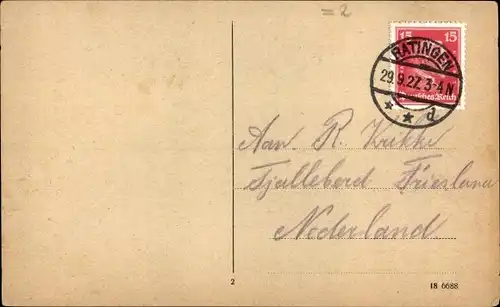 = 2
15 15
RATINGEN
29.9.27. 3-4 N
Deutsches Reich
* * d
Aan R. Krikke
Tjalleberd Friesland
Nederland.
2
18 6688